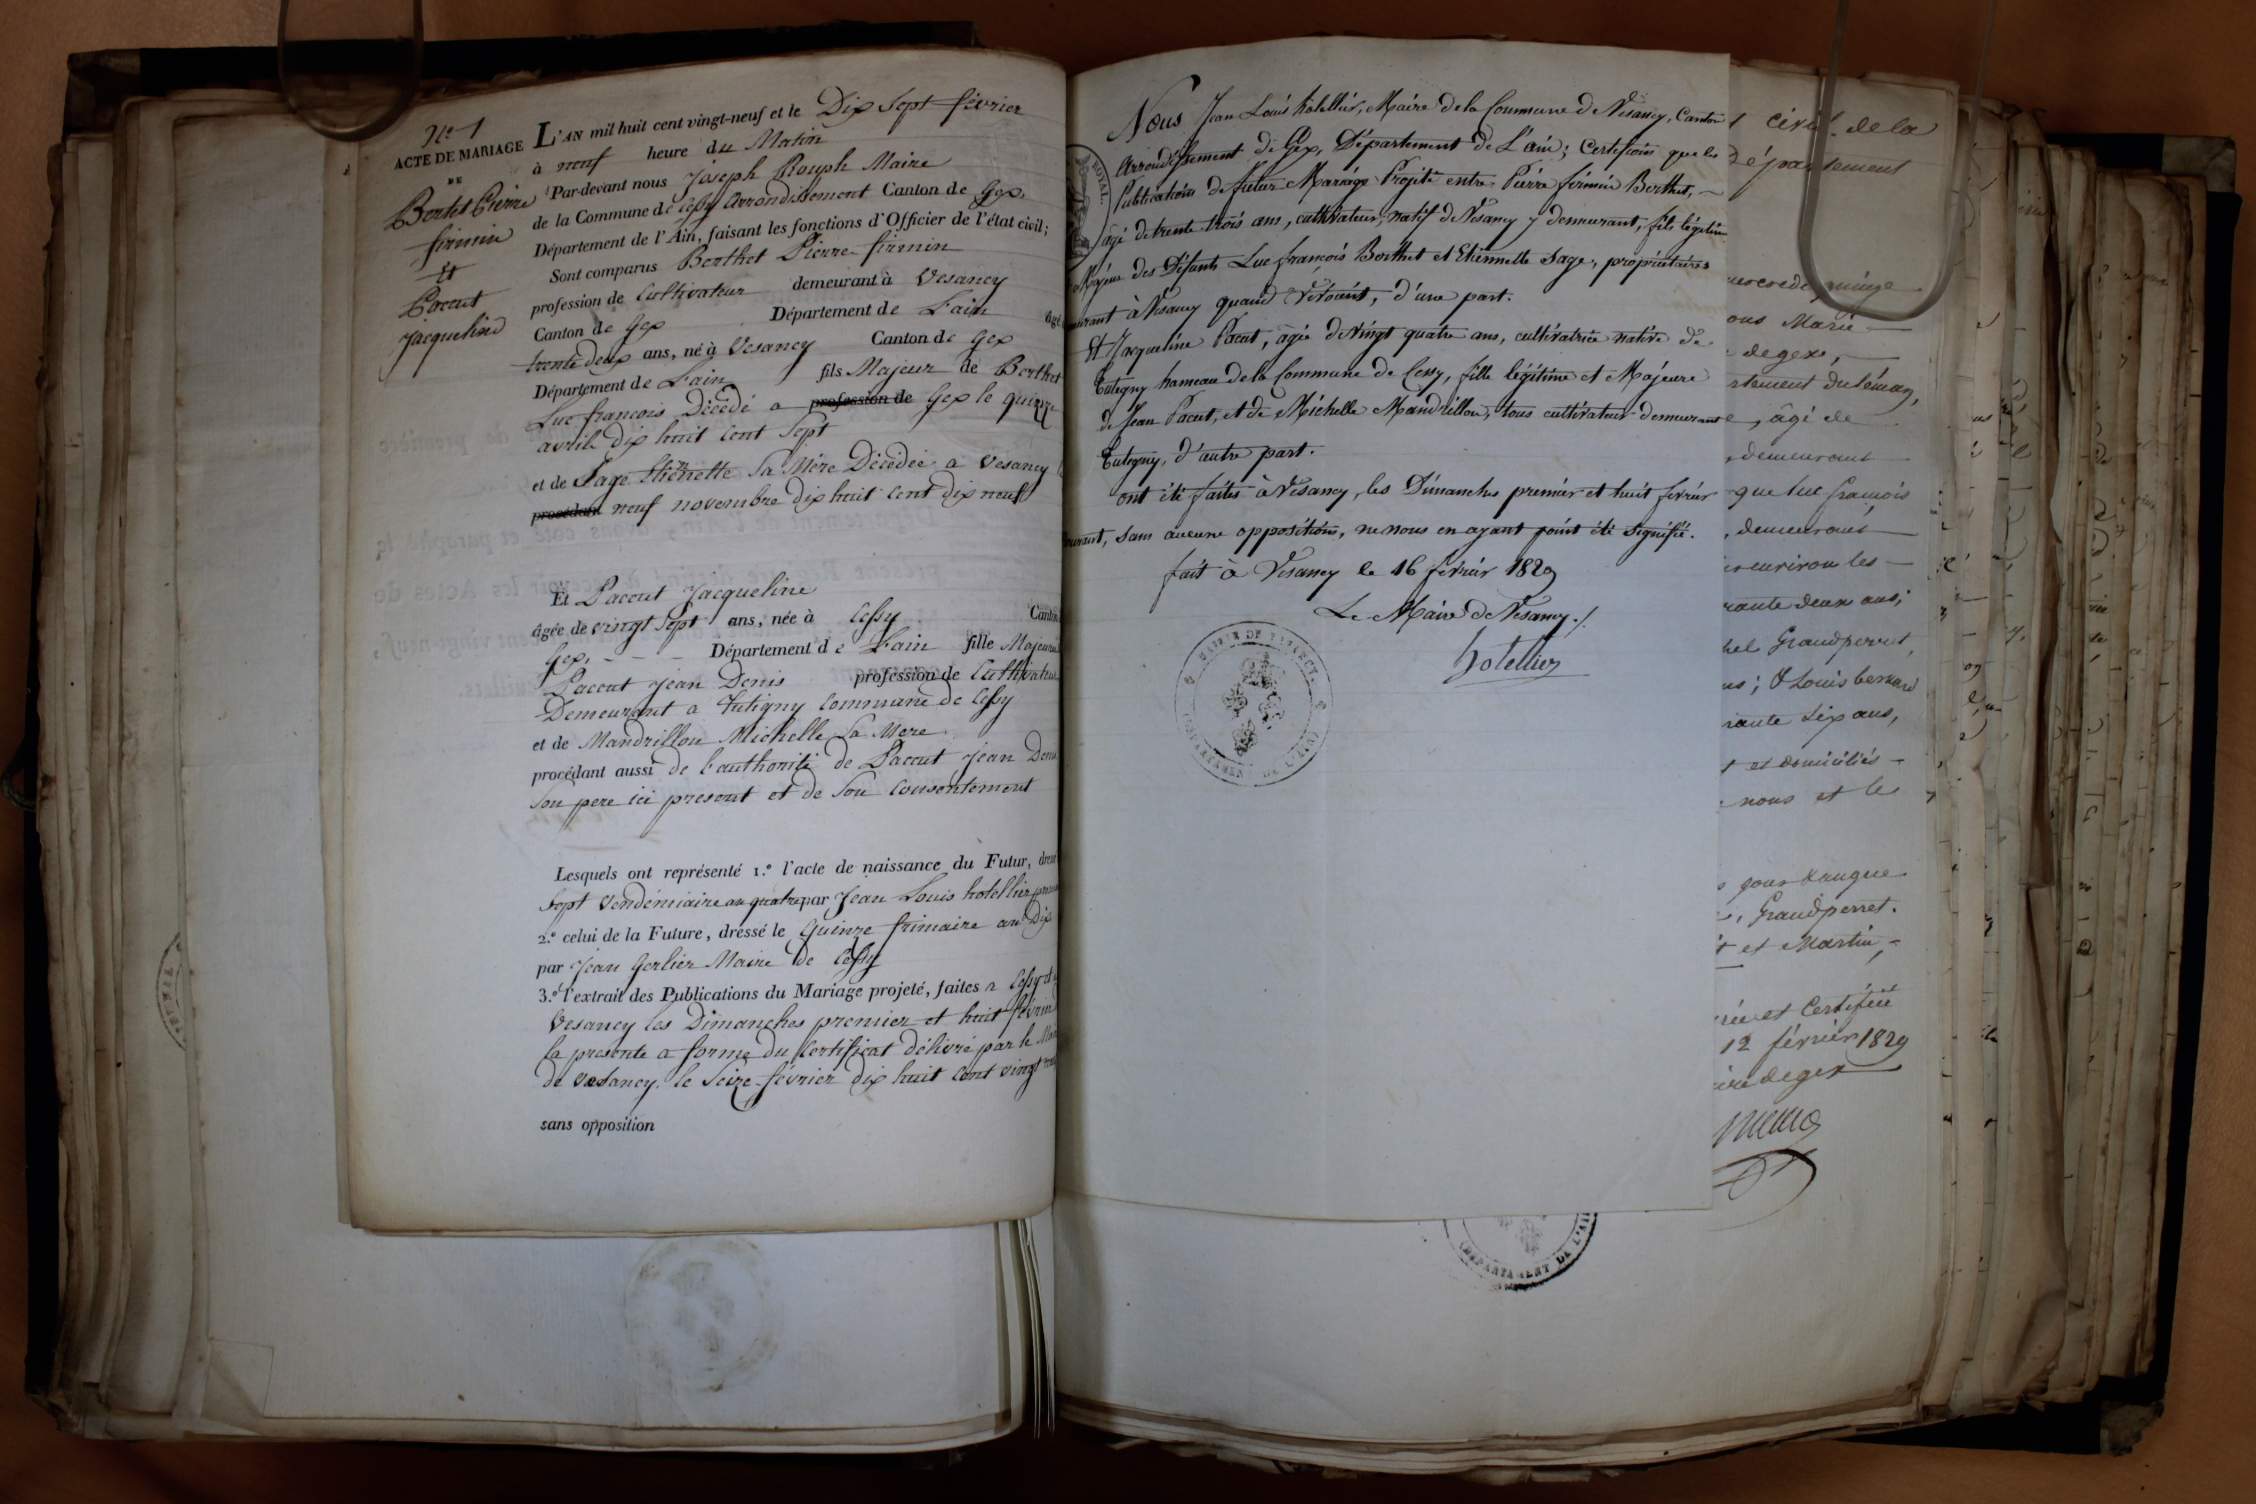 N.º 1
ACTE DE MARIAGE
DE
Bertet Pierre
firmin
Et
Pacout
Jacqueline
L'AN mil huit cent vingt-neuf et le Dix Sept février
à neuf heure du Matin
Par-devant nous Joseph Rouph Maire
de la Commune de Cessy Arrondissement Canton de Gex,
Département de l'Ain, faisant les fonctions d'Officier de l'état civil;
Sont comparus Berthet Pierre firmin
profession de Cultivateur demeurant à Vesancy
Canton de Gex Département de L'ain âgé
trente deux ans, né à Vesancy Canton de Gex
Département de L'ain fils Majeur de Berthet
Luc françois Décédé a profession de Gex le quinze
avril dix huit cent Sept
et de Sage Etiènette Sa Mère Décedée a Vesancy
procédant neuf novembre dix huit cent dix neuf
Et Paccut Jacqueline
âgée de vingt Sept ans, née à Cessy Canton
Gex. Département de L'ain fille Majeure
Paccut Jean Denis profession de Cultivateur
Demeurant a Tutigny Commune de Cessy
et de Mandrillon Michelle Sa Mere
procédant aussi de l'authorité de Paccut Jean Denis
Son pere ici present et de Son Consentement
Lesquels ont représenté 1.º l'acte de naissance du Futur, dressé
Sept Vendémiaire an quatre par Jean Louis hotellier
2.º celui de la Future, dressé le Quinze frimaire an Dix
par Jean Gerlier Maire de Cessy
3.º l'extrait des Publications du Mariage projeté, faites a Cessy et
Vesancy les Dimanches premier et huit février
la presente a forme du Certificat délivré par le
de Vesancy. le Seize février dix huit cent vingt
sans opposition
ROYAL.
Nous Jean Louis hôtellier, Maire de la Commune de Vésancy, Canton
Arrondissement de Gex, Département de L'ain; Certifions que les
Publications de futur Mariage Projité entre Piérre firmin Berthet,
âgé de trente trois ans, cultivateur, natif de Vésancy y demeurant, fils légitime
Majeur des Défunts Luc françois Berthet et Etiennette Sage, propriétaires
demeurant à Vesancy quand Vivoient, d'une part.
Et Jacqueline Pacut, âgée de vingt quatre ans, cultivatrice native de
Tutegny hameau de la Commune de Cessy, fille légitime et Majeure
de Jean Pacut, et de Michelle Mandrillon, tous cultivateur demeurant
Tutegny, d'autre part.
ont été faites à Vésancy, les Dimanches premier et huit février
courant, sans aucune oppositions, ne nous en ayant point été Signifié.
fait à Vésancy le 16 février 1829
Le Maire de Vésancy./.
hotellier
MAIRIE DE VESANCY.
DEPARTEMENT DE L'AIN
civil de la
département
ous Marie
de gex,
rtement du Léman,
e, âgé de
demeurant
que luc françois
, demeurant
rante deux ans;
hel Grandperret,
ns; & Louis bernard
rante Six ans,
t et domiciliés
nous et le
, Grandperret.
t et Martin,
rée et Certifiée
12 février 1829
ire de gex
DEPARTAMENT DE L'AIN